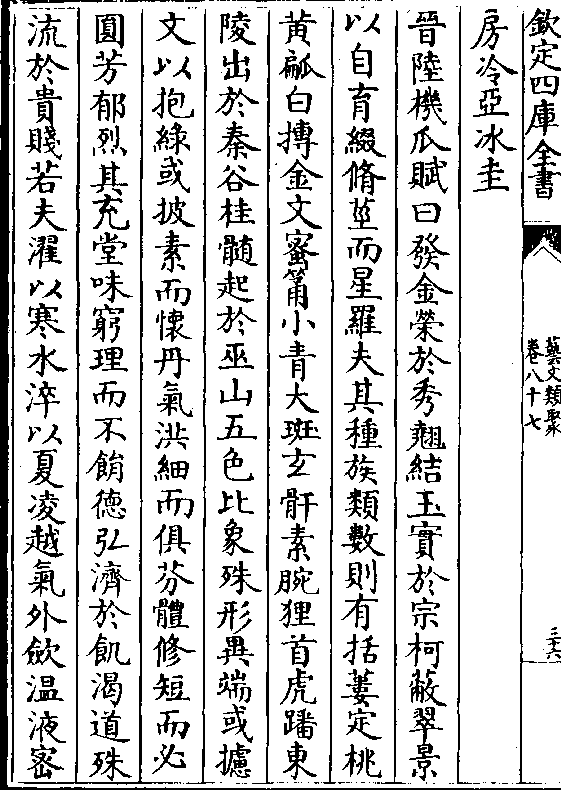 欽定四庫全書
藝文類聚
卷八十七
三六
房冷亞冰圭
晉陸機瓜賦曰發金榮於秀翹結玉實於宗柯蔽翠景
以自育綴脩莖而星羅夫其種族類數則有括蔞定桃
黃㼐白摶金文蜜筩小青大斑玄骭素腕狸首虎蹯東
陵出於秦谷桂髄起於巫山五色比象殊形異端或攄
文以抱綠或披素而懷丹氣洪細而俱芬體修短而必
圓芳郁烈其充堂味窮理而不餶德弘濟於飢渴道殊
流於貴賤若夫濯以寒水淬以夏凌越氣外歛温液密